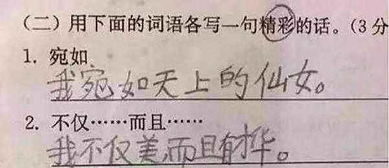 (二)用下面的词语各写一句精彩的话。(3分
1. 宛如
我宛如天上的仙女。
2. 不仅……而且……
我不仅美,而且有才华。